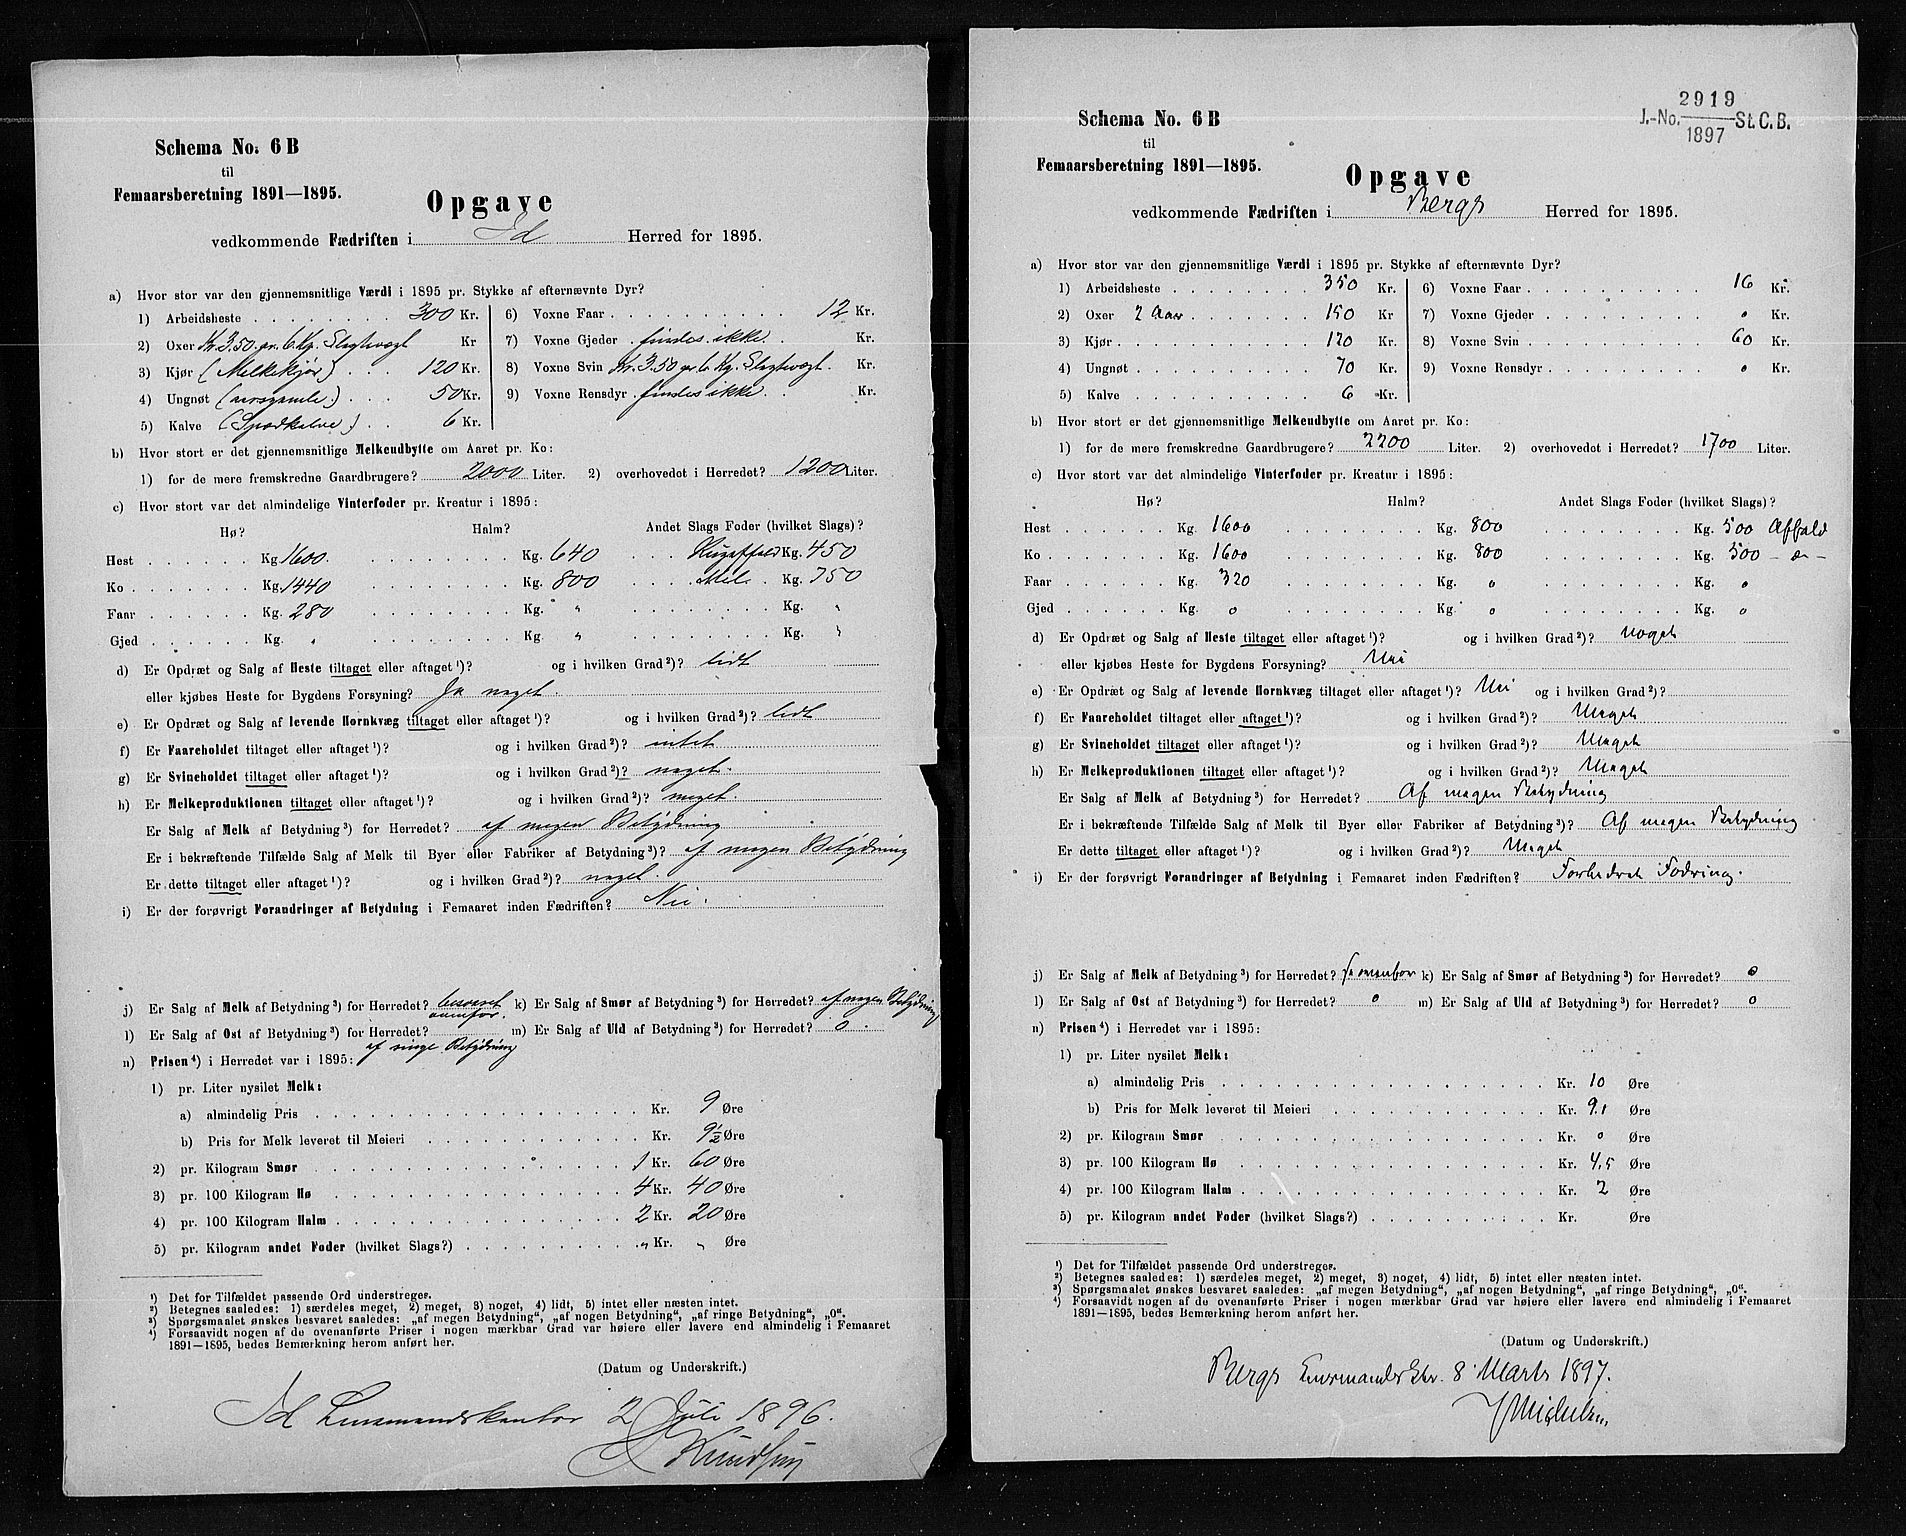 Schema No. 6 B
til
Femaarsberetning 1891—1895.
Opgave
vedkommende Fædriften i Id Herred for 1895.
a) Hvor stor var den gjennemsnitlige Værdi i 1895 pr. Stykke af efternævnte Dyr?
1) Arbeidsheste 300 Kr.
2) Oxer Kr. 3.50 pr. 6 Kg. Slagtvægt Kr
3) Kjør (Melkekjør) 120 Kr.
4) Ungnøt (aarsgamle) 50 Kr.
5) Kalve (Spædkalve) 6 Kr.
6) Voxne Faar 12 Kr.
7) Voxne Gjeder findes ikke Kr.
8) Voxne Svin Kr. 3.50 pr 6 Kg. Slagtvægt. Kr.
9) Voxne Rensdyr findes ikke Kr.
b) Hvor stort er det gjennemsnitlige Melkeudbytte om Aaret pr. Ko:
1) for de mere fremskredne Gaardbrugere? 2000 Liter. 2) overhovedet i Herredet? 1200 Liter.
c) Hvor stort var det almindelige Vinterfoder pr. Kreatur i 1895:
Hø? Halm? Andet Slags Foder (hvilket Slags)?
Hest Kg. 1600. Kg. 640 Kg. 450
Ko Kg. 1440 Kg. 800 Mel. Kg. 750
Faar Kg. 280 Kg. " Kg. "
Gjed Kg. " Kg. " Kg. "
d) Er Opdræt og Salg af Heste tiltaget eller aftaget ¹)? og i hvilken Grad ²)? lidt
eller kjøbes Heste for Bygdens Forsyning? Ja noget.
e) Er Opdræt og Salg af levende Hornkvæg tiltaget eller aftaget ¹)? og i hvilken Grad ²)? lidt
f) Er Faareholdet tiltaget eller aftaget ¹)? og i hvilken Grad ²)? intet
g) Er Svineholdet tiltaget eller aftaget ¹)? og i hvilken Grad ²)? noget.
h) Er Melkeproduktionen tiltaget eller aftaget ¹)? og i hvilken Grad ²)? meget.
Er Salg af Melk af Betydning ³) for Herredet? af megen Betydning
Er i bekræftende Tilfælde Salg af Melk til Byer eller Fabriker af Betydning ³)? af megen Betydning
Er dette tiltaget eller aftaget ¹)? og i hvilken Grad ²)? noget.
i) Er der forøvrigt Forandringer af Betydning i Femaaret inden Fædriften? Nei.
j) Er Salg af Melk af Betydning ³) for Herredet? besvaret ovenfor. k) Er Salg af Smør af Betydning ³) for Herredet? af nogen Betydning
l) Er Salg af Ost af Betydning ³) for Herredet? af ringe Betydning m) Er Salg af Uld af Betydning ³) for Herredet? 0.
n) Prisen ⁴) i Herredet var i 1895:
1) pr. Liter nysilet Melk:
a) almindelig Pris Kr. 9 Øre
b) Pris for Melk leveret til Meieri Kr. 9½ Øre
2) pr. Kilogram Smør 1 Kr. 60 Øre
3) pr. 100 Kilogram Hø 4 Kr. 40 Øre
4) pr. 100 Kilogram Halm 2 Kr. 20 Øre
5) pr. Kilogram andet Foder (hvilket Slags?) " Kr. " Øre
¹) Det for Tilfældet passende Ord understreges.
²) Betegnes saaledes: 1) særdeles meget, 2) meget, 3) noget, 4) lidt, 5) intet eller næsten intet.
³) Spørgsmaalet ønskes besvaret saaledes: „af megen Betydning“, „af nogen Betydning“, „af ringe Betydning“, „0“.
⁴) Forsaavidt nogen af de ovenanførte Priser i nogen mærkbar Grad var høiere eller lavere end almindelig i Femaaret
1891—1895, bedes Bemærkning herom anført her.
(Datum og Underskrift.)
Id Lensmandskontor 2 Juli 1896.
Knudsen
2919
J.-No. St. C. B.
1897
Schema No. 6 B
til
Femaarsberetning 1891—1895.
Opgave
vedkommende Fædriften i Bergs Herred for 1895.
a) Hvor stor var den gjennemsnitlige Værdi i 1895 pr. Stykke af efternævnte Dyr?
1) Arbeidsheste 350 Kr.
2) Oxer 2 Aar 150 Kr
3) Kjør 120 Kr.
4) Ungnøt 70 Kr.
5) Kalve 6 Kr.
6) Voxne Faar 16 Kr.
7) Voxne Gjeder 0 Kr.
8) Voxne Svin 60 Kr.
9) Voxne Rensdyr 0 Kr.
b) Hvor stort er det gjennemsnitlige Melkeudbytte om Aaret pr. Ko:
1) for de mere fremskredne Gaardbrugere? 2200 Liter. 2) overhovedet i Herredet? 1700 Liter.
c) Hvor stort var det almindelige Vinterfoder pr. Kreatur i 1895:
Hø? Halm? Andet Slags Foder (hvilket Slags)?
Hest Kg. 1600 Kg. 800 Kg. 500 Affald
Ko Kg. 1600 Kg. 800 Kg. 500 — „ —
Faar Kg. 320 Kg. 0 Kg. 0
Gjed Kg. 0 Kg. 0 Kg. 0
d) Er Opdræt og Salg af Heste tiltaget eller aftaget ¹)? og i hvilken Grad ²)? Noget
eller kjøbes Heste for Bygdens Forsyning? Nei
e) Er Opdræt og Salg af levende Hornkvæg tiltaget eller aftaget ¹)? Nei og i hvilken Grad ²)?
f) Er Faareholdet tiltaget eller aftaget ¹)? og i hvilken Grad ²)? Meget
g) Er Svineholdet tiltaget eller aftaget ¹)? og i hvilken Grad ²)? Meget
h) Er Melkeproduktionen tiltaget eller aftaget ¹)? og i hvilken Grad ²)? Meget
Er Salg af Melk af Betydning ³) for Herredet? Af megen Betydning
Er i bekræftende Tilfælde Salg af Melk til Byer eller Fabriker af Betydning ³)? Af megen Betydning
Er dette tiltaget eller aftaget ¹)? og i hvilken Grad ²)? Meget
i) Er der forøvrigt Forandringer af Betydning i Femaaret inden Fædriften? Forbedret Fodring.
j) Er Salg af Melk af Betydning ³) for Herredet? Se ovenfor k) Er Salg af Smør af Betydning ³) for Herredet? 0
l) Er Salg af Ost af Betydning ³) for Herredet? 0 m) Er Salg af Uld af Betydning ³) for Herredet? 0
n) Prisen ⁴) i Herredet var i 1895:
1) pr. Liter nysilet Melk:
a) almindelig Pris Kr. 10 Øre
b) Pris for Melk leveret til Meieri Kr. 9.1 Øre
2) pr. Kilogram Smør Kr. 0 Øre
3) pr. 100 Kilogram Hø Kr. 4.5 Øre
4) pr. 100 Kilogram Halm Kr. 2 Øre
5) pr. Kilogram andet Foder (hvilket Slags?) Kr. Øre
¹) Det for Tilfældet passende Ord understreges.
²) Betegnes saaledes: 1) særdeles meget, 2) meget, 3) noget, 4) lidt, 5) intet eller næsten intet.
³) Spørgsmaalet ønskes besvaret saaledes: „af megen Betydning“, „af nogen Betydning“, „af ringe Betydning“, „0“.
⁴) Forsaavidt nogen af de ovenanførte Priser i nogen mærkbar Grad var høiere eller lavere end almindelig i Femaaret
1891—1895, bedes Bemærkning herom anført her.
(Datum og Underskrift.)
Bergs 8 Marts 1897.